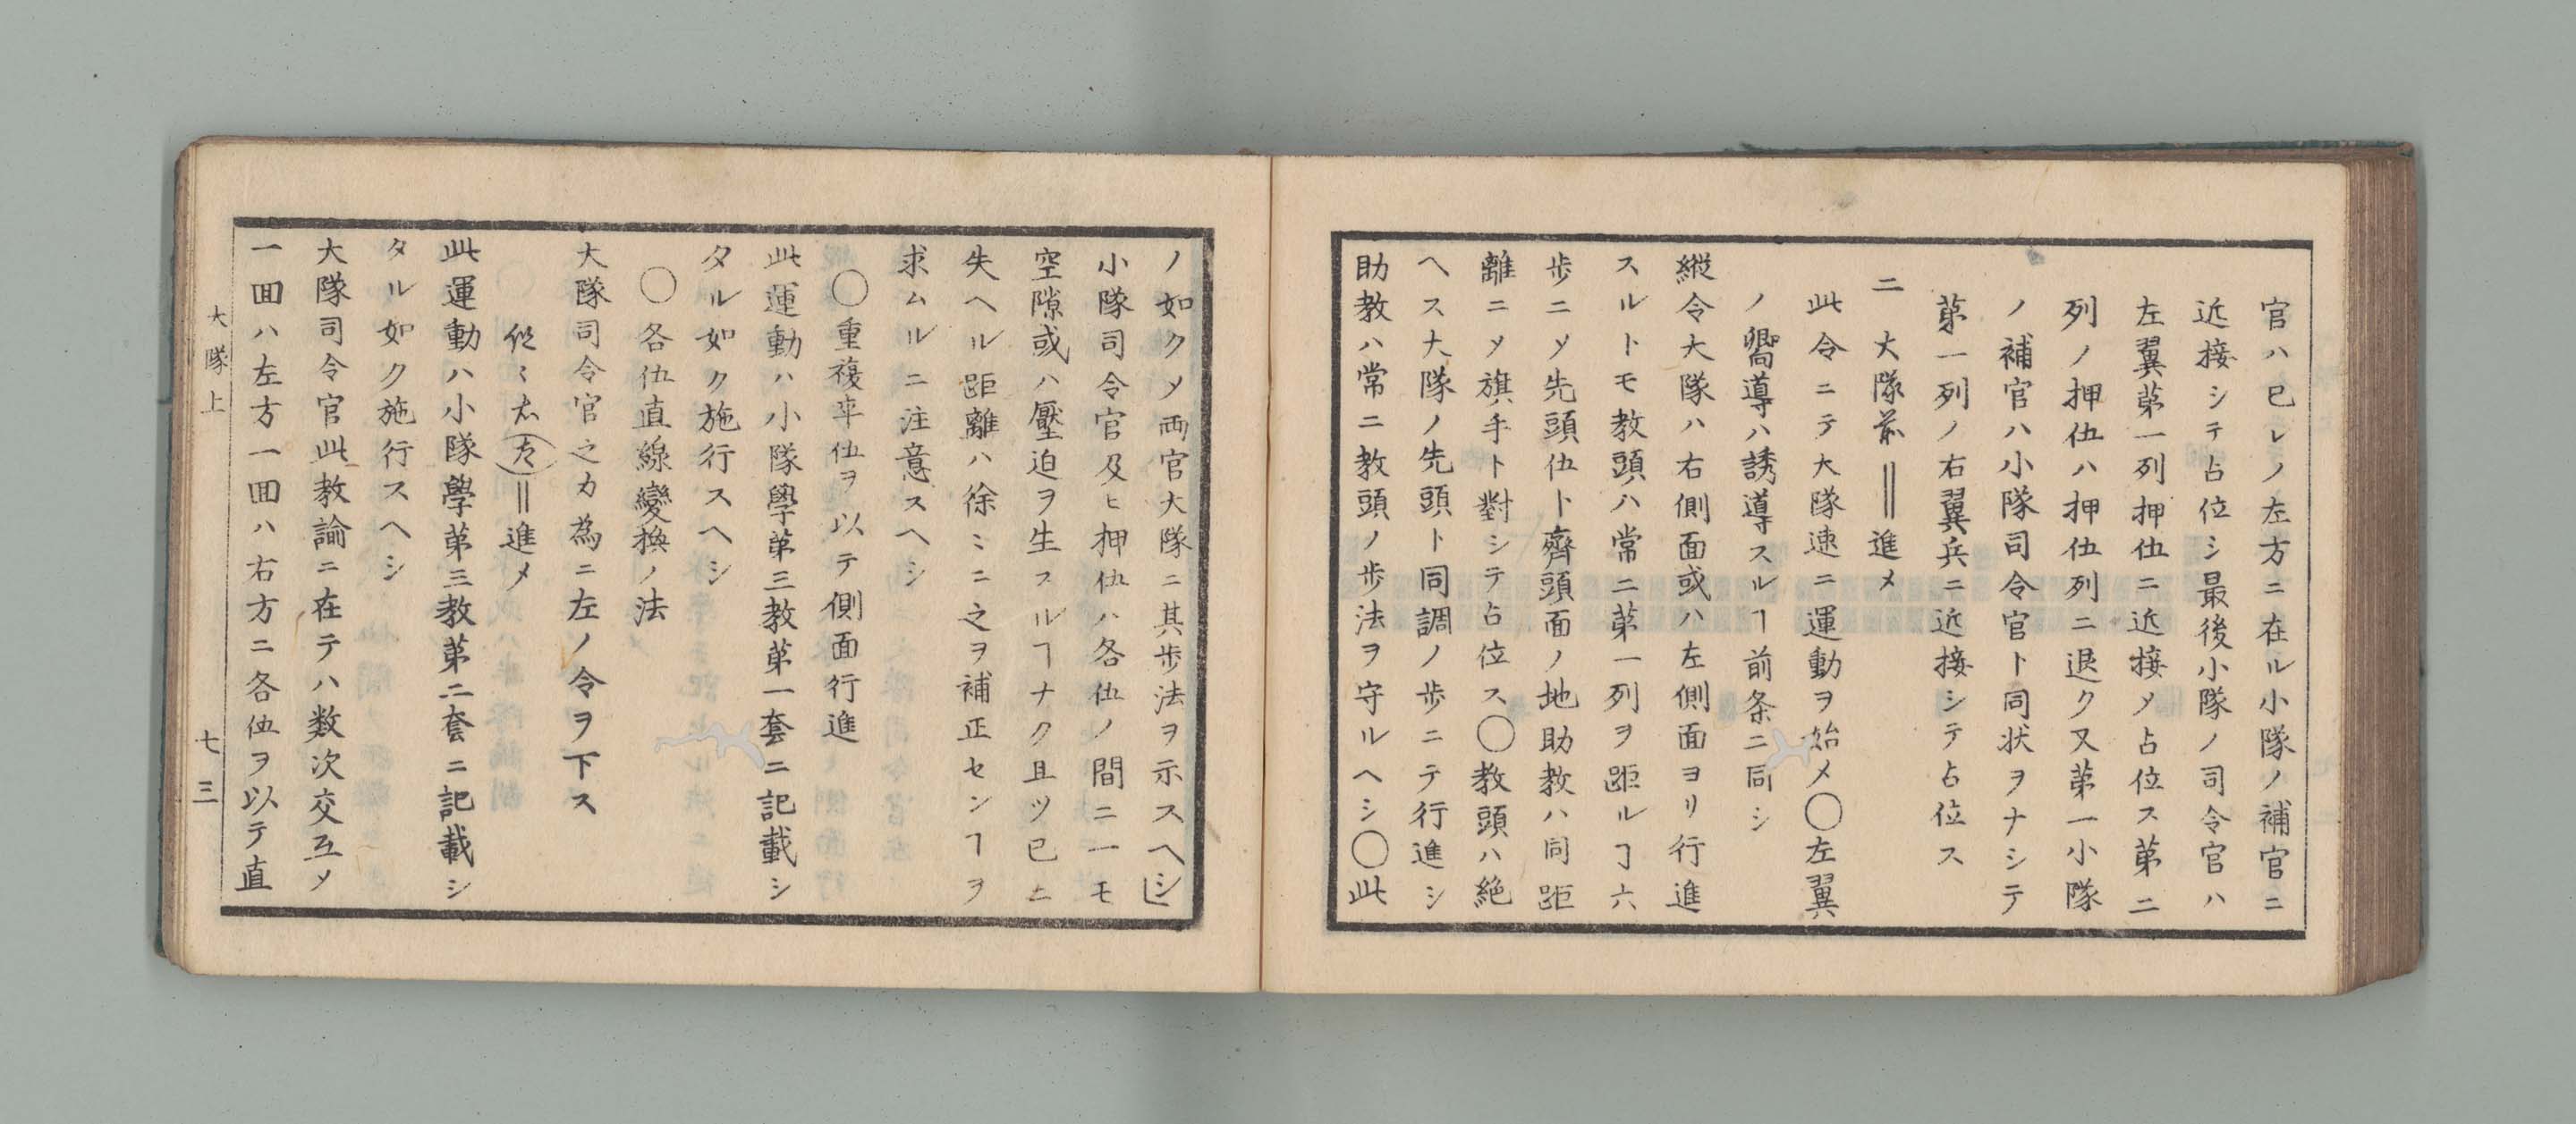 官ハ已レノ左方ニ在ル小隊ノ補官ニ
近接シテ占位シ最後小隊ノ司令官ハ
左翼苐一列押伍ニ近接メ占位ス苐二
列ノ押伍ハ押伍列ニ退ク又苐一小隊
ノ補官ハ小隊司令官ト同状ヲナシテ
苐一列ノ右翼兵ニ近接シテ占位ス
二 大隊前‖進メ
此令ニテ大隊速ニ運動ヲ始メ〇左翼
ノ嚮導ハ誘導スルヿ前条ニ同シ
縦令大隊ハ右側面或ハ左側面ヨリ行進
スルトモ教頭ハ常ニ苐一列ヲ距ルヿ六
歩ニメ先頭伍ト齊頭面ノ地助教ハ同距
離ニメ旗手ト對シテ占位ス〇教頭ハ絶
ヘス大隊ノ先頭ト同調ノ歩ニテ行進シ
助教ハ常ニ教頭ノ歩法ヲ守ルヘシ〇此
ノ如クメ両官大隊ニ其歩法ヲ示スヘシ」
小隊司令官及ヒ押伍ハ各伍ノ間ニ一モ
空隙或ハ壓迫ヲ生スルヿナク且ツ已ニ
失ヘル距離ハ徐ミニ之ヲ補正センヿヲ
求ムルニ注意スヘシ
〇重複率伍ヲ以テ側面行進
此運動ハ小隊學苐三教苐一套ニ記載シ
タル如ク施行スヘシ
〇各伍直線變換ノ法
大隊司令官之カ為ニ左ノ令ヲ下ス
従〻右(左)‖進メ
此運動ハ小隊學苐三教苐二套ニ記載シ
タル如ク施行スヘシ
大隊司令官此教諭ニ在テハ数次交互メ
一囬ハ左方一囬ハ右方ニ各伍ヲ以テ直
大隊上 七三